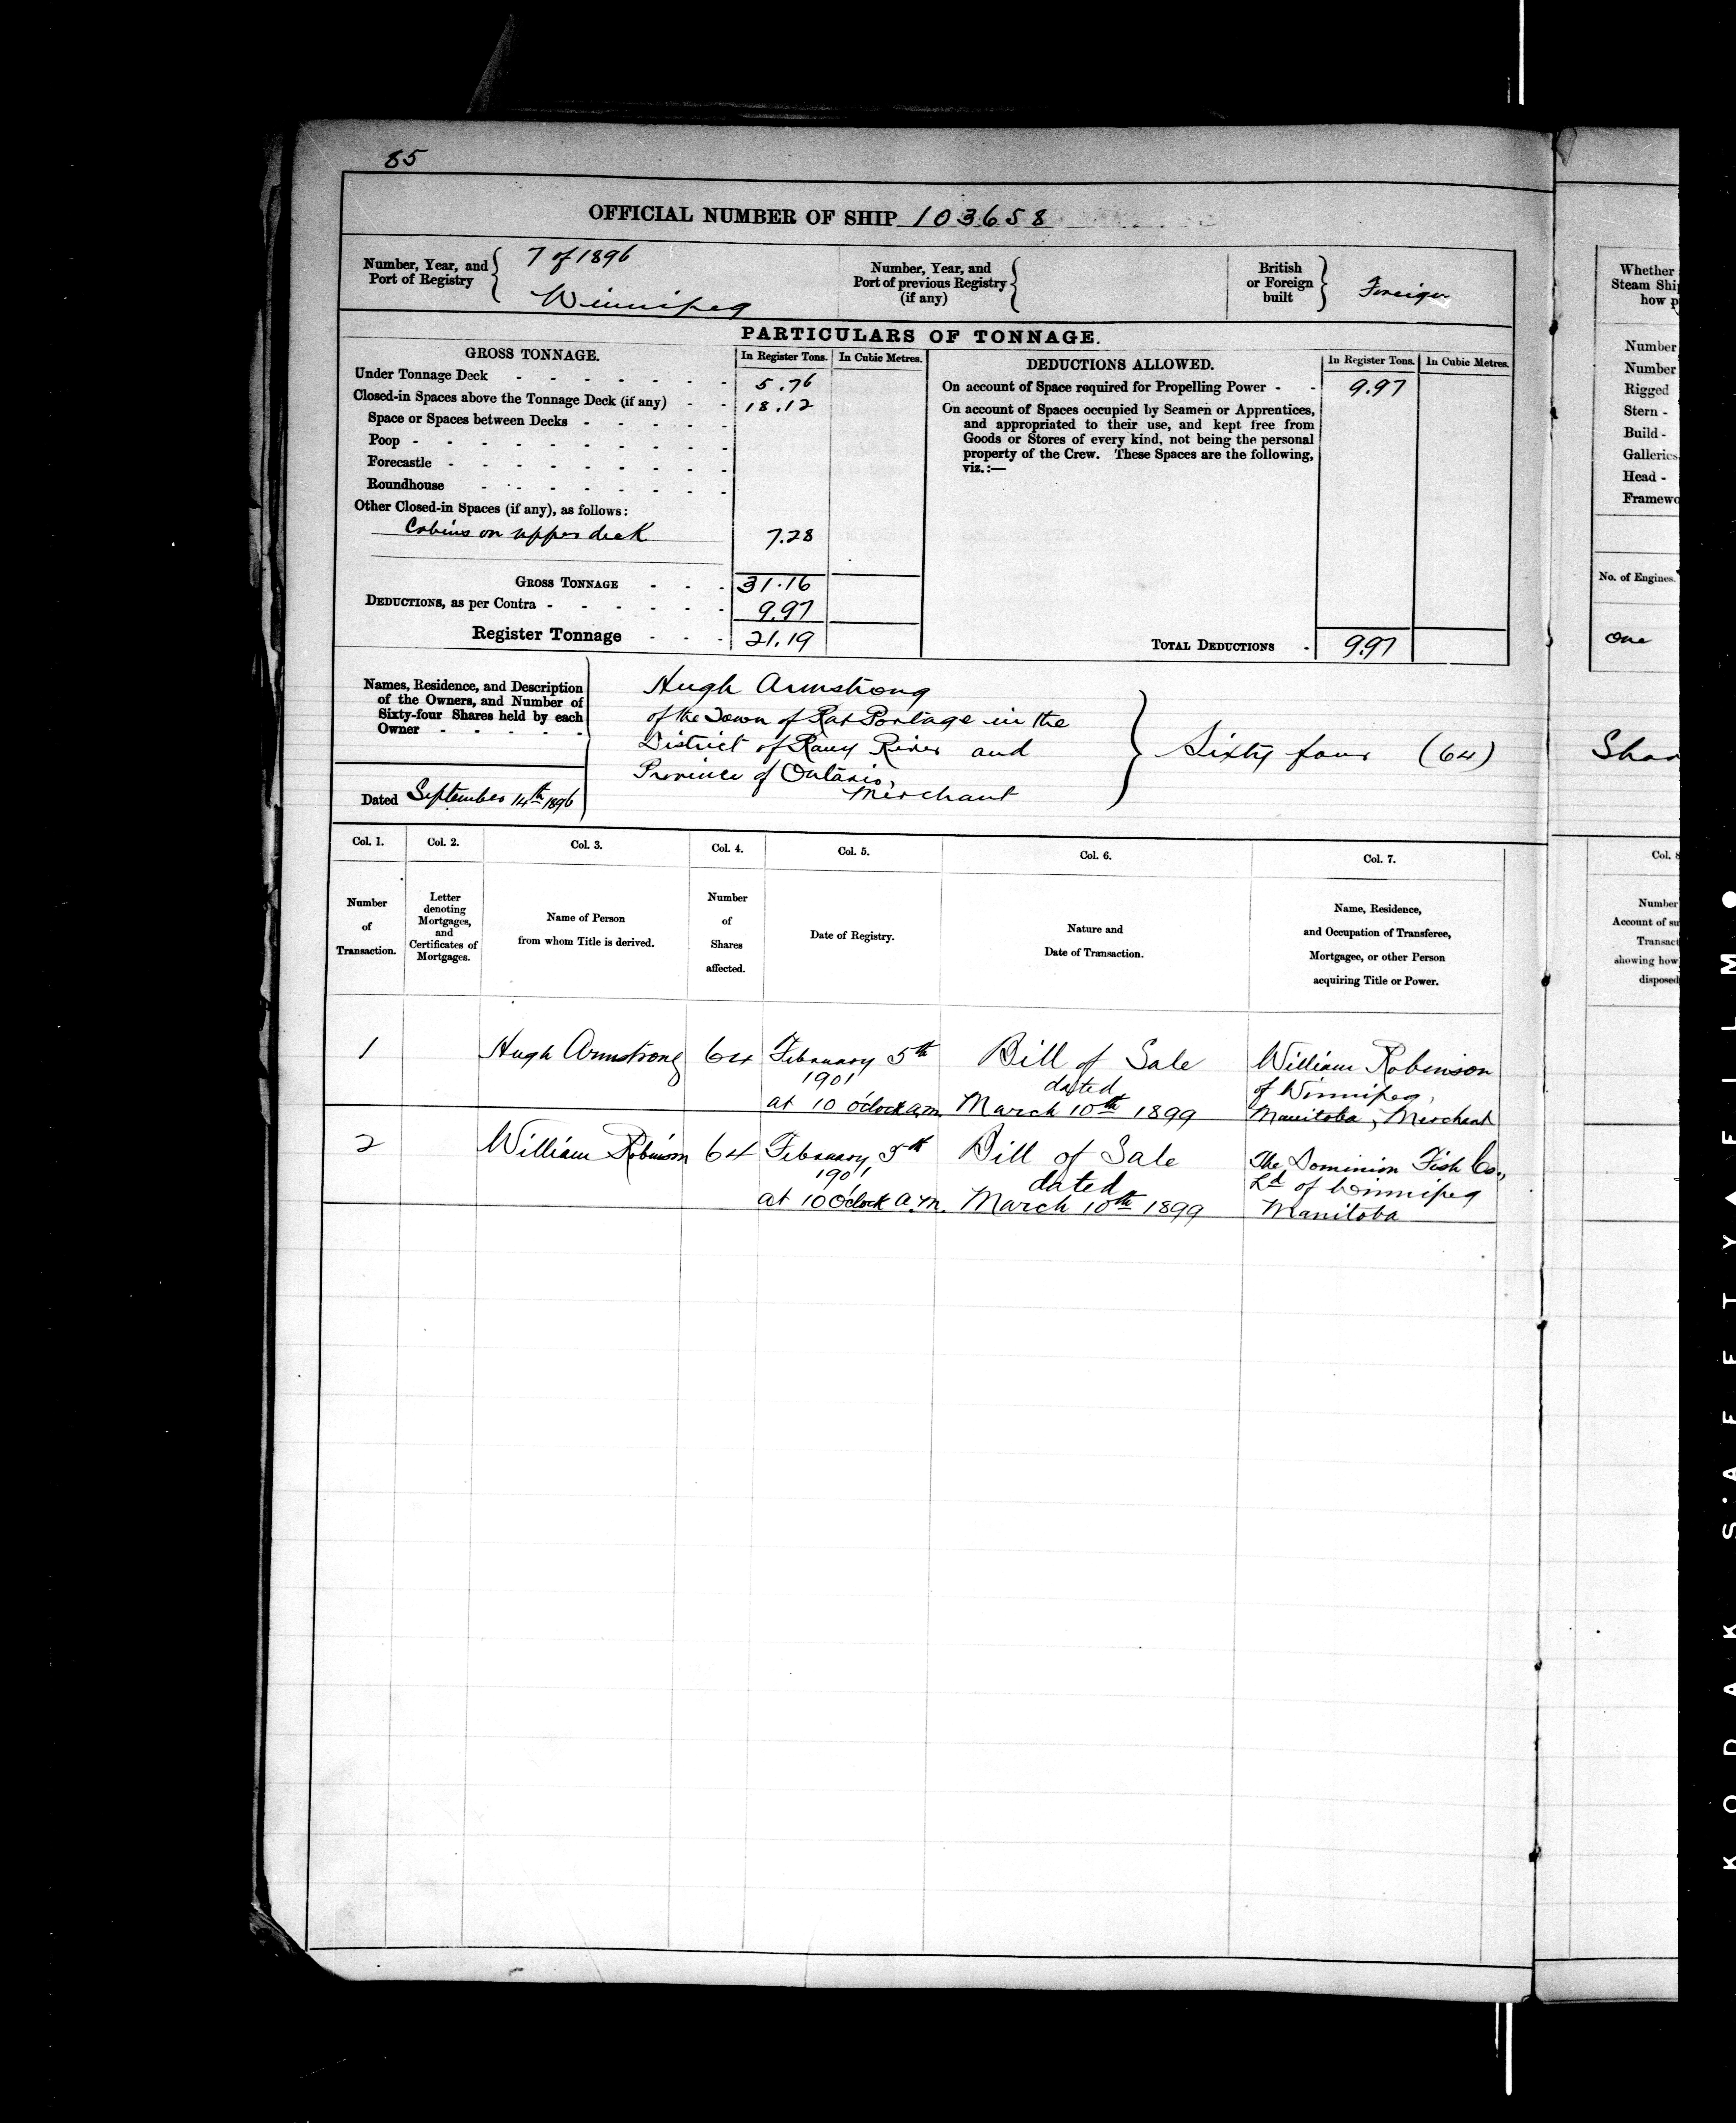 85
OFFICIAL NUMBER OF SHIP 103658
Number, Year, and
Port of Registry
7 of 1896
Winnipeg
Number, Year, and
Port of previous Registry
(if any)
British
or Foreign
built
Foreign
PARTICULARS OF TONNAGE.
GROSS TONNAGE.
In Register Tons.
In Cubic Metres.
Under Tonnage Deck - - - - - - - 5.76
Closed-in Spaces above the Tonnage Deck (if any) - - 18.12
Space or Spaces between Decks - - - - -
Poop - - - - - - - - -
Forecastle - - - - - - - -
Roundhouse - - - - - - - -
Other Closed-in Spaces (if any), as follows:
Cabins on upper deck 7.28
GROSS TONNAGE - - - 31.16
DEDUCTIONS, as per Contra - - - - - - 9.97
Register Tonnage - - - 21.19
DEDUCTIONS ALLOWED.
In Register Tons.
In Cubic Metres.
On account of Space required for Propelling Power - - 9.97
On account of Spaces occupied by Seamen or Apprentices,
and appropriated to their use, and kept free from
Goods or Stores of every kind, not being the personal
property of the Crew. These Spaces are the following,
viz.:—
TOTAL DEDUCTIONS - 9.97
Names, Residence, and Description
of the Owners, and Number of
Sixty-four Shares held by each
Owner - - - - -
Dated September 14th 1896
Hugh Armstrong
of the Town of Rat Portage in the
District of Rainy River and
Province of Ontario,
Merchant
Sixty four (64)
Col. 1.
Col. 2.
Col. 3.
Col. 4.
Col. 5.
Col. 6.
Col. 7.
Number
of
Transaction.
Letter
denoting
Mortgages,
and
Certificates of
Mortgages.
Name of Person
from whom Title is derived.
Number
of
Shares
affected.
Date of Registry.
Nature and
Date of Transaction.
Name, Residence,
and Occupation of Transferee,
Mortgagee, or other Person
acquiring Title or Power.
1
Hugh Armstrong
64
February 5th
1901
at 10 o'clock a.m.
Bill of Sale
dated
March 10th 1899
William Robinson
of Winnipeg,
Manitoba, Merchant
2
William Robinson
64
February 5th
1901
at 10 O'clock a.m.
Bill of Sale
dated
March 10th 1899
The Dominion Fish Co.,
Ld of Winnipeg
Manitoba
Whether
Steam Shi
how p
Number
Number
Rigged
Stern -
Build -
Galleries
Head -
Framewo
No. of Engines.
One
Shar
Col. 8
Number
Account of su
Transact
showing how
disposed
KODAK SAFETY FILM